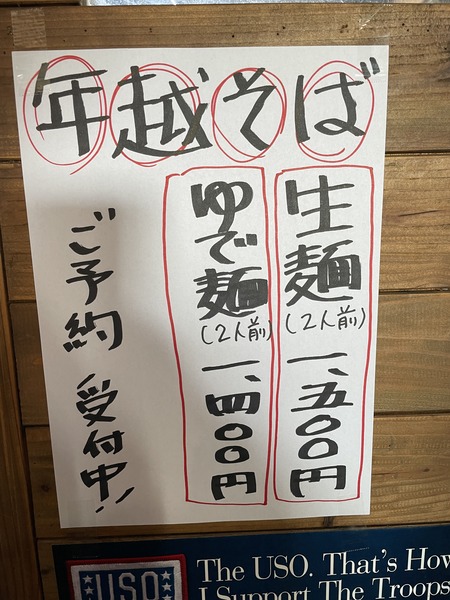 年越そば
生麺(2人前)一、五〇〇円
ゆで麺(2人前)一、四〇〇円
ご予約 受付中!
USO
The USO. That's How
I Support The Troops